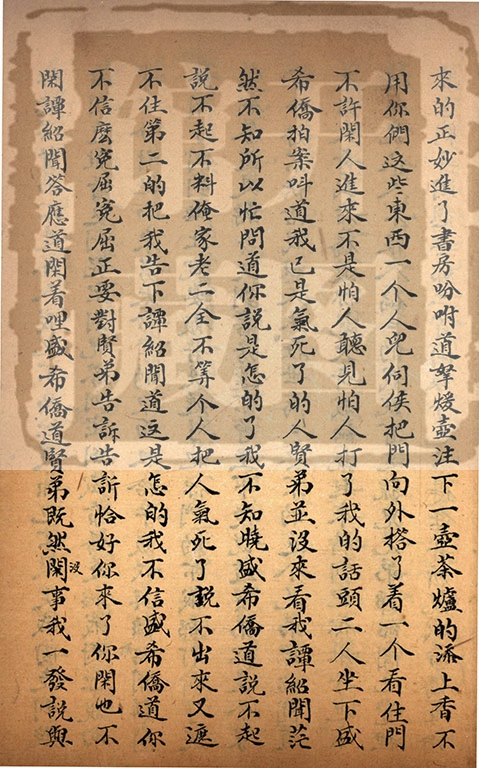 來的正妙進了書房吩咐道拏煖壺注下一壺茶爐的添上香不
用你們这些東西一个人児伺侯把門向外搭了着一个看住門
不許閑人進來不是怕人聽見怕人打了我的話頭二人坐下盛
希僑拍案呌道我已是氣死了的人賢弟並没來看我譚紹聞茫
然不知所以忙問道你説是怎的了我不知曉盛希僑道説不起
説不起不料俺家老二全不筭个人把人氣死了説不出來又遮
不住第二的把我告下譚紹聞道这是怎的我不信盛希僑道你
不信麽寃屈寃屈正要對賢弟告訴告訴恰好你來了你閑也不
閑譚紹聞答應道閑着哩盛希僑道賢弟既然閑没事我一發説與